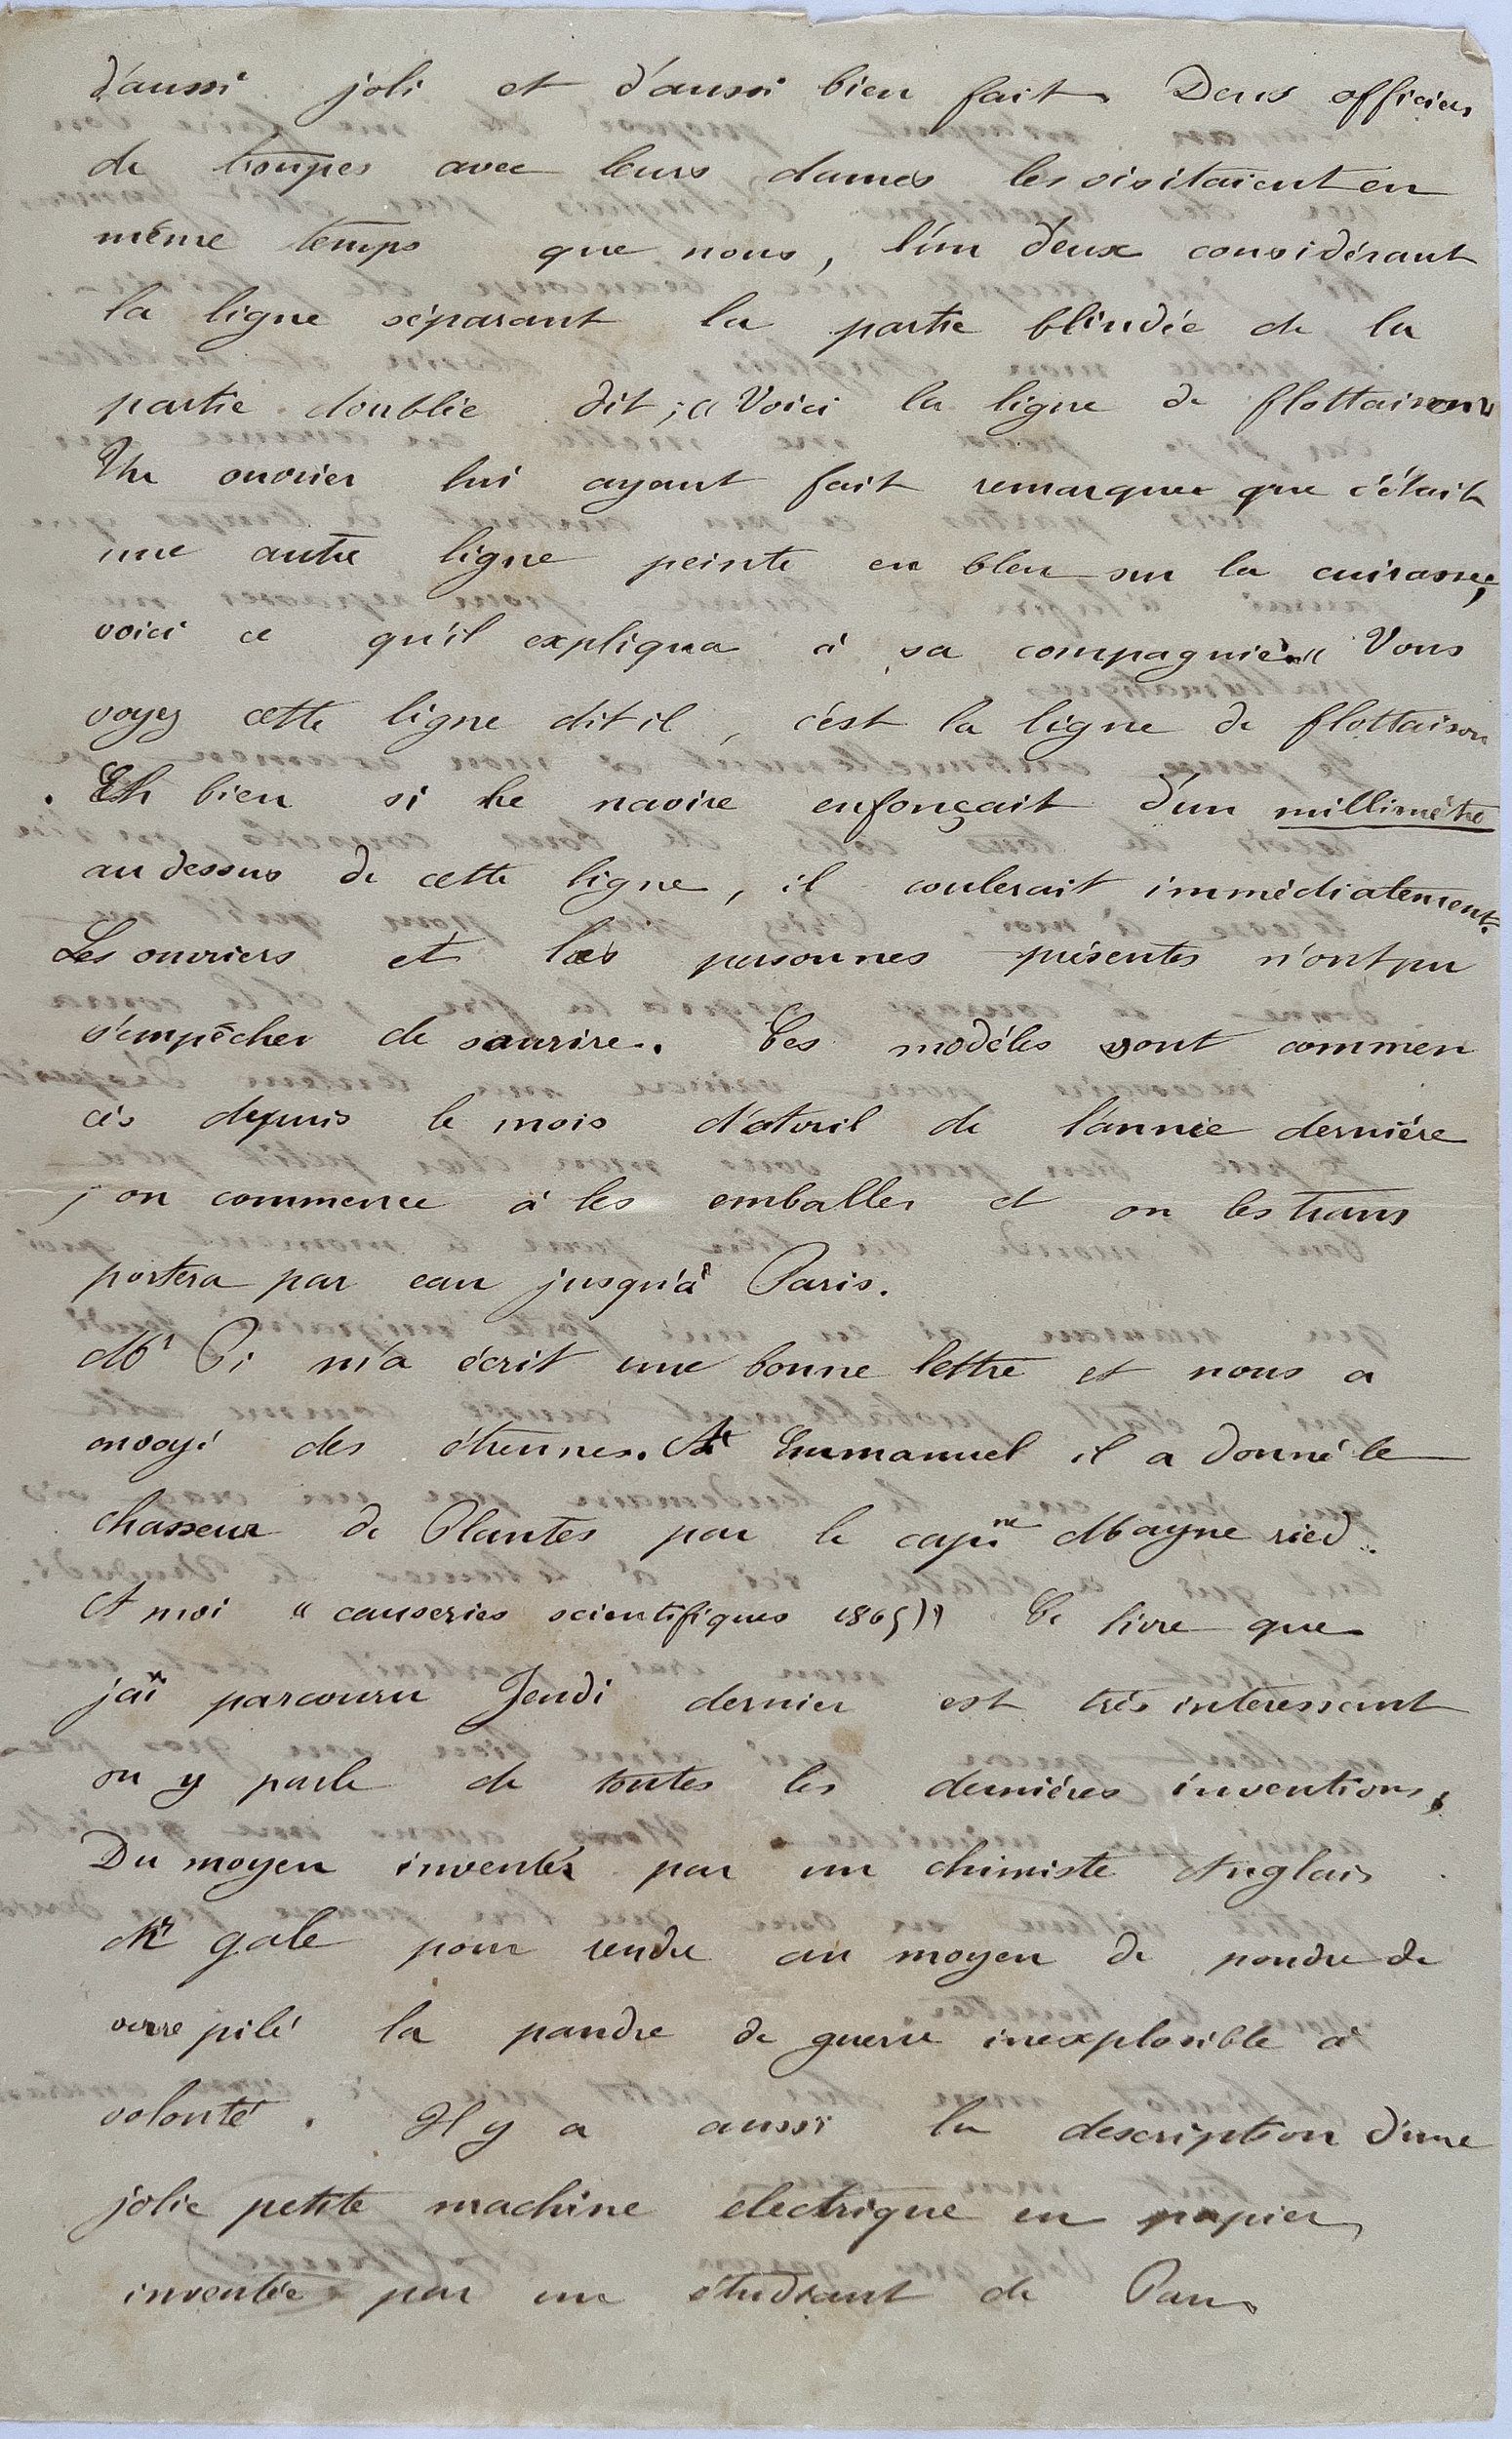 d'aussi joli et d'aussi bien fait. Deux officiers
de troupes avec leurs dames les visitaient en
même temps que nous, l'un d'eux considérant
la ligne séparant la partie blindée de la
partie doublée dit ; « Voici la ligne de flottaison
Un ouvrier lui ayant fait remarquer que c'était
une autre ligne peinte en bleu sur la cuirasse,
voici ce qu'il expliqua à sa compagnie « Vous
voyez cette ligne dit il, c'est la ligne de flottaison
Eh bien si le navire enfonçait d'un millimètre
au dessus de cette ligne, il coulerait immédiatement.
Les ouvriers et les personnes présentes n'ont pu
s'empêcher de sourire. Ces modèles sont commen
cés depuis le mois d'avril de l'année dernière
, on commence à les emballer et on les trans
portera par eau jusqu'à Paris.
Mr Pi m'a écrit une bonne lettre et nous a
envoyé des étrennes. A Emmanuel il a donné le
chasseur de Plantes par le capne Mayne ried.
A moi « causeries scientifiques 1865 » Ce livre que
j'ai parcouru Jeudi dernier est très intéressant
on y parle de toutes les dernières inventions,
Du moyen inventé par un chimiste Anglais
Mr gale pour rendre au moyen de poudre de
verre pilé la poudre de guerre inexplosible à
volonté. Il y a aussi la description d'une
jolie petite machine électrique en papier,
inventée par un étudiant de Paris